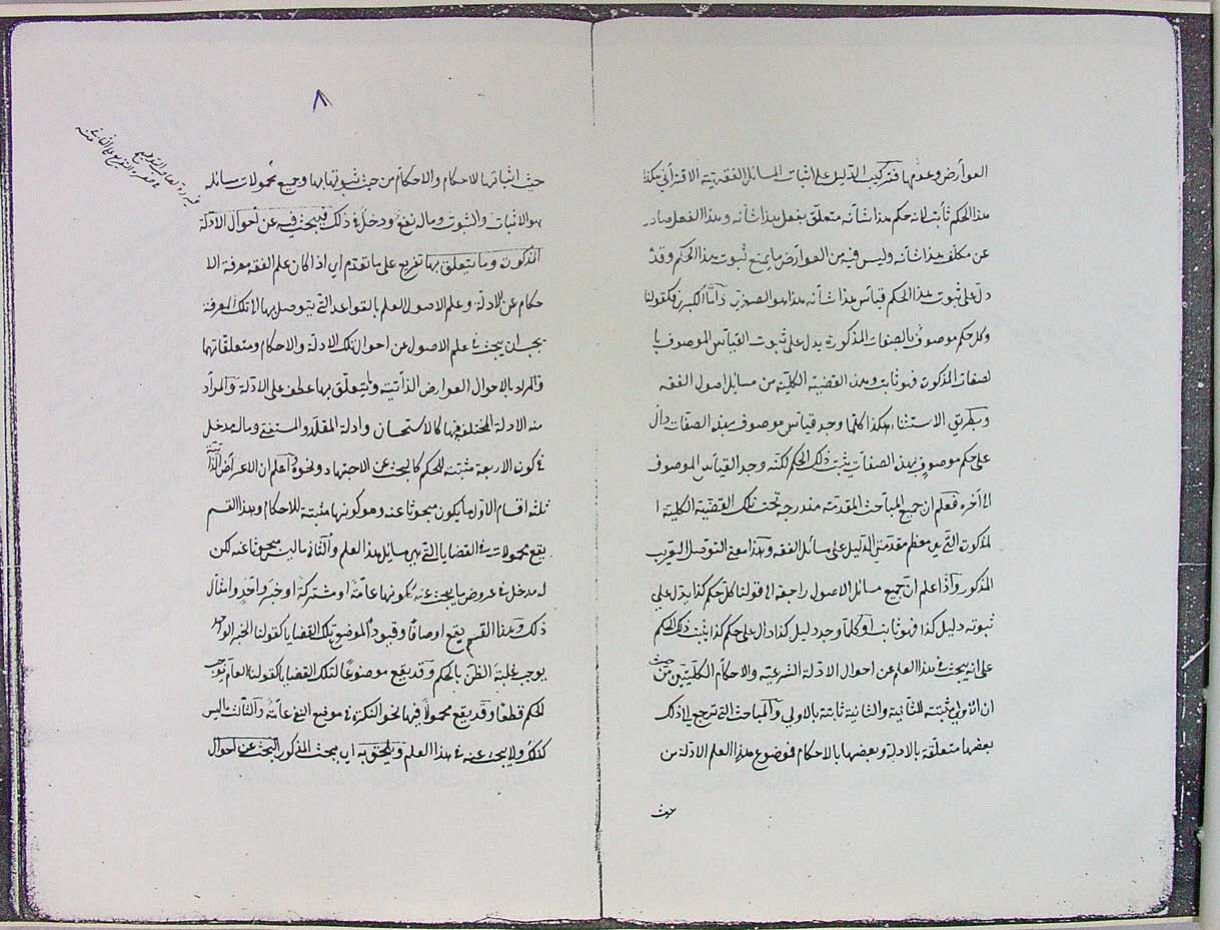 العوارض وعدمها فتركيب الدليل على اثبات المسائل الفقهية الاقتراني هكذا
هذا الحكم ثابت لانه حكم هذا شأنه متعلق بفعل هذا شأنه وهذا الفعل صادر
عن مكلف هذا شأنه وليس فيه من العوارض ما يمنع ثبوت هذا الحكم وقد
دل على ثبوت هذا الحكم قياس هذا شأنه هذا هو الصغرى واما الكبرى فكقولنا
وكل حكم موصوف بالصفات المذكورة يدل على ثبوت القياس الموصوف با
لصفات المذكورة فهو ثابت وهذه القضية الكلية من مسائل اصول الفقه
وبطريق الاستثناء هكذا كلما وجد قياس موصوف بهذه الصفات دال
على حكم موصوف بهذه الصفات يثبت ذلك الحكم لكنه وجد القياس الموصوف
الى آخره فعلم ان جميع المباحث المقدمة مندرجة تحت تلك القضية الكلية ا
لمذكورة التي هي معظم مقدمتي الدليل على مسائل الفقه وهذا معنى التوصل القريب
المذكور واذا علم ان جميع مسائل الاصول راجعة الى قولنا كل حكم كذا يدل على
ثبوته دليل كذا فهو ثابت او كلما وجد دليل كذا دال على حكم كذا يثبت ذلك الحكم
علم انه يبحث في هذا العلم عن احوال الادلة الشرعية والاحكام الكليتين من حيث
ان الاولى مثبتة للثانية والثانية ثابتة بالاولى والمباحث التي ترجع الى ذلك
بعضها متعلقة بالادلة وبعضها بالاحكام فموضوع هذا العلم الادلة من
حيث
٨
حيث اثباتها الاحكام والاحكام من حيث ثبوتها بها وجميع محمولات مسائله
هو الاثبات والثبوت وماله نفع ودخل في ذلك فيبحث فيه عن احوال الادلة
المذكورة وما يتعلق بها تفريع على ما تقدم اي اذا كان علم الفقه معرفة الا
حكام عن الادلة وعلم الاصول العلم بالقواعد التي يتوصل بها الى تلك المعرفة
يجب ان يبحث في علم الاصول عن احوال تلك الادلة والاحكام ومتعلقاتها
والمراد بالاحوال العوارض الذاتية وما يتعلق بها عطف على الادلة والمراد
منه الادلة المختلف فيها كالاستحسان وادلة المقلد والمستفتي وماله مدخل
في كون الاربعة مثبتة للحكم كالبحث عن الاجتهاد ونحوه واعلم ان الاعراض الذاتية
ثلثة اقسام الاول ما يكون مبحوثا عنه وهو كونها مثبتة للاحكام وهذا القسم
يقع محمولات في القضايا التي هي مسايل هذا العلم والثاني ما ليس مبحوثا عنه لكن
له مدخل في عروض ما يبحث عنه ككونها عامة او مشتركة او خبر واحد وامثال
ذلك وهذا القسم يقع اوصافا وقيودا لموضوع تلك القضايا كقولنا الخبر الواحد
يوجب غلبة الظن بالحكم وقد يقع موضوعا لتلك القضايا كقولنا العام يوجب
الحكم قطعا وقد يقع محمولا فيها نحو النكرة في موضع النفي عامة والثالث ما ليس
كذلك ولا يبحث عنه في هذا العلم ويلحق به اي بمبحث المذكور البحث عن احوال